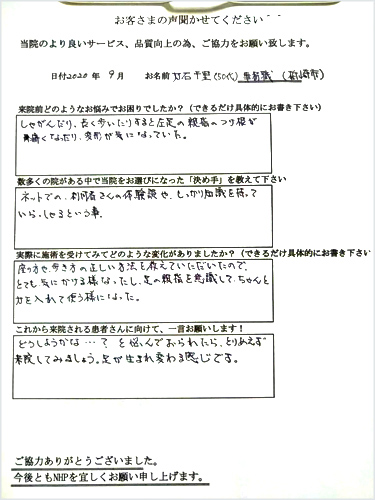 お客さまの声聞かせてください
当院のより良いサービス、品質向上の為、ご協力をお願い致します。
日付2020年 9月 お名前 千里(50代)
来院前どのようなお悩みでお困りでしたか?(できるだけ具体的にお書き下さい)
しゃがんだり、長く歩いたりすると左足の親指のつけ根が
痛くなったり、変形が気になっていた。
数多くの院がある中で当院をお選びになった「決め手」を教えて下さい
ネットでの、利用者さんの体験談や、しっかり知識を持って
いらっしゃるという事。
実際に施術を受けてみてどのような変化がありましたか?(できるだけ具体的にお書き下さい
座り方や、歩き方の正しい方法を教えていただいたので、
とても気にかける様なったし、足の親指を意識して、ちゃんと
力を入れて使う様になった。
これから来院される患者さんに向けて、一言お願いします!
どうしようかな…?と悩んでおられたら、とりあえず
来院してみましょう。足が生まれ変わる感じです。
ご協力ありがとうございました。
今後ともNHPを宜しくお願い申し上げます。